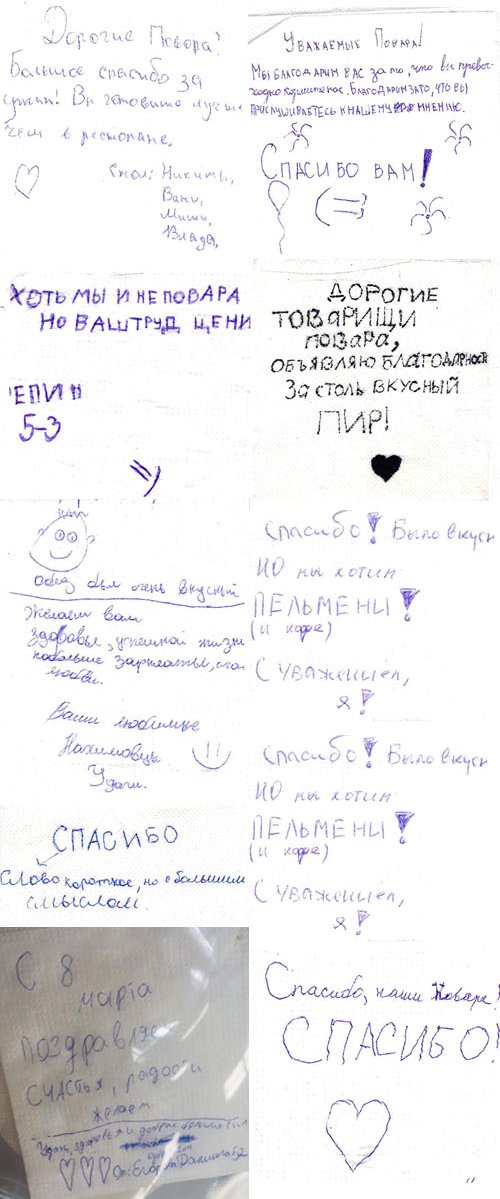 Дорогие Повора!
Большое спасибо за
ужин! Вы готовите лучше
чем в ресторане.
Стол: Никиты,
Вани,
Миши,
Влада,
Уважаемые Повора!
Мы благодарим вас за то, что вы превос-
ходно кормите нас. Благодарим за то, что вы
прислушиваетесь к нашему мнению.
Спасибо вам!
(=))
ХОТЬ МЫ И НЕ ПОВАРА
НО ВАШ ТРУД ЦЕНИ
5-3
=)
ДОРОГИЕ
ТОВАРИЩИ
ПОВАРА,
ОБЪЯВЛЯЮ БЛАГОДАРНОСТЬ
ЗА СТОЛЬ ВКУСНЫЙ
ПИР!
Обед был очень вкусный
Желаем вам
здоровье, успешной жизни
побольше зарплаты,
любви.
Ваши любимые
Нахимовцы
Удачи.
СПАСИБО
Слово короткое, но с большим
смыслом.
Спасибо! Было вкусн
НО мы хотим
ПЕЛЬМЕНИ!
(и кофе)
С уважением,
я!
Спасибо! Было вкусн
НО мы хотим
ПЕЛЬМЕНИ!
(и кофе)
С уважением,
я!
С 8
марта
Поздравляе
СЧАСТЬЯ, радости
желаем
Удачи, здоровья и добра
От: Егора Данила
Спасибо, наши Повара!
СПАСИБО!